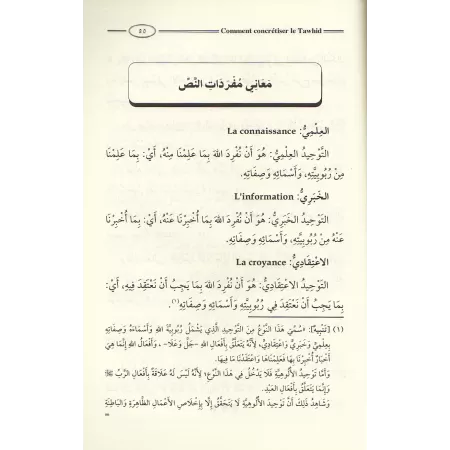 ٥٥ Comment concrétiser le Tawhid
مَعَانِي مُفْرَدَاتِ النَّصِّ
العِلْمِيُّ: La connaissance
التَّوْحِيدُ العِلْمِيُّ: هُوَ أَنْ نُفْرِدَ اللهَ بِمَا عَلِمْنَا مِنْهُ، أَيْ: بِمَا عَلِمْنَا
مِنْ رُبُوبِيَّتِهِ، وَأَسْمَائِهِ وَصِفَاتِهِ.
الخَبَرِيُّ: L'information
التَّوْحِيدُ الخَبَرِيُّ: هُوَ أَنْ نُفْرِدَ اللهَ بِمَا أُخْبِرْنَا عَنْهُ، أَيْ: بِمَا أُخْبِرْنَا
عَنْهُ مِنْ رُبُوبِيَّتِهِ، وَأَسْمَائِهِ وَصِفَاتِهِ.
الاعْتِقَادِيُّ: La croyance
التَّوْحِيدُ الاعْتِقَادِيُّ: هُوَ أَنْ نُفْرِدَ اللهَ بِمَا يَجِبُ أَنْ نَعْتَقِدَ فِيهِ، أَيْ:
بِمَا يَجِبُ أَنْ نَعْتَقِدَ فِي رُبُوبِيَّتِهِ وَأَسْمَائِهِ وَصِفَاتِهِ(١).
(١) [تَنْبِيهٌ]: سُمِّيَ هَذَا النَّوْعُ مِنَ التَّوْحِيدِ الَّذِي يَشْمَلُ رُبُوبِيَّةَ اللهِ وَأَسْمَاءَهُ وَصِفَاتِهِ
بِعِلْمِيٍّ وَخَبَرِيٍّ وَاعْتِقَادِيٍّ، لِأَنَّهُ يَتَعَلَّقُ بِأَفْعَالِ اللهِ -جَلَّ وَعَلَا-، وَأَفْعَالُ اللهِ إِنَّمَا هِيَ
أَخْبَارٌ أُخْبِرْنَا بِهَا فَعَلِمْنَاهَا وَاعْتَقَدْنَا مَا فِيهَا.
وَأَمَّا تَوْحِيدُ الأُلُوهِيَّةِ فَلَا يَدْخُلُ فِي هَذَا النَّوْعِ؛ لِأَنَّهُ لَيْسَ لَهُ عَلَاقَةٌ بِأَفْعَالِ الرَّبِّ
وَإِنَّمَا يَتَعَلَّقُ بِأَفْعَالِ العَبْدِ.
وَشَاهِدُ ذَلِكَ أَنَّ تَوْحِيدَ الأُلُوهِيَّةِ لَا يَتَحَقَّقُ إِلَّا بِإِخْلَاصِ الأَعْمَالِ الظَّاهِرَةِ وَالبَاطِنَةِ